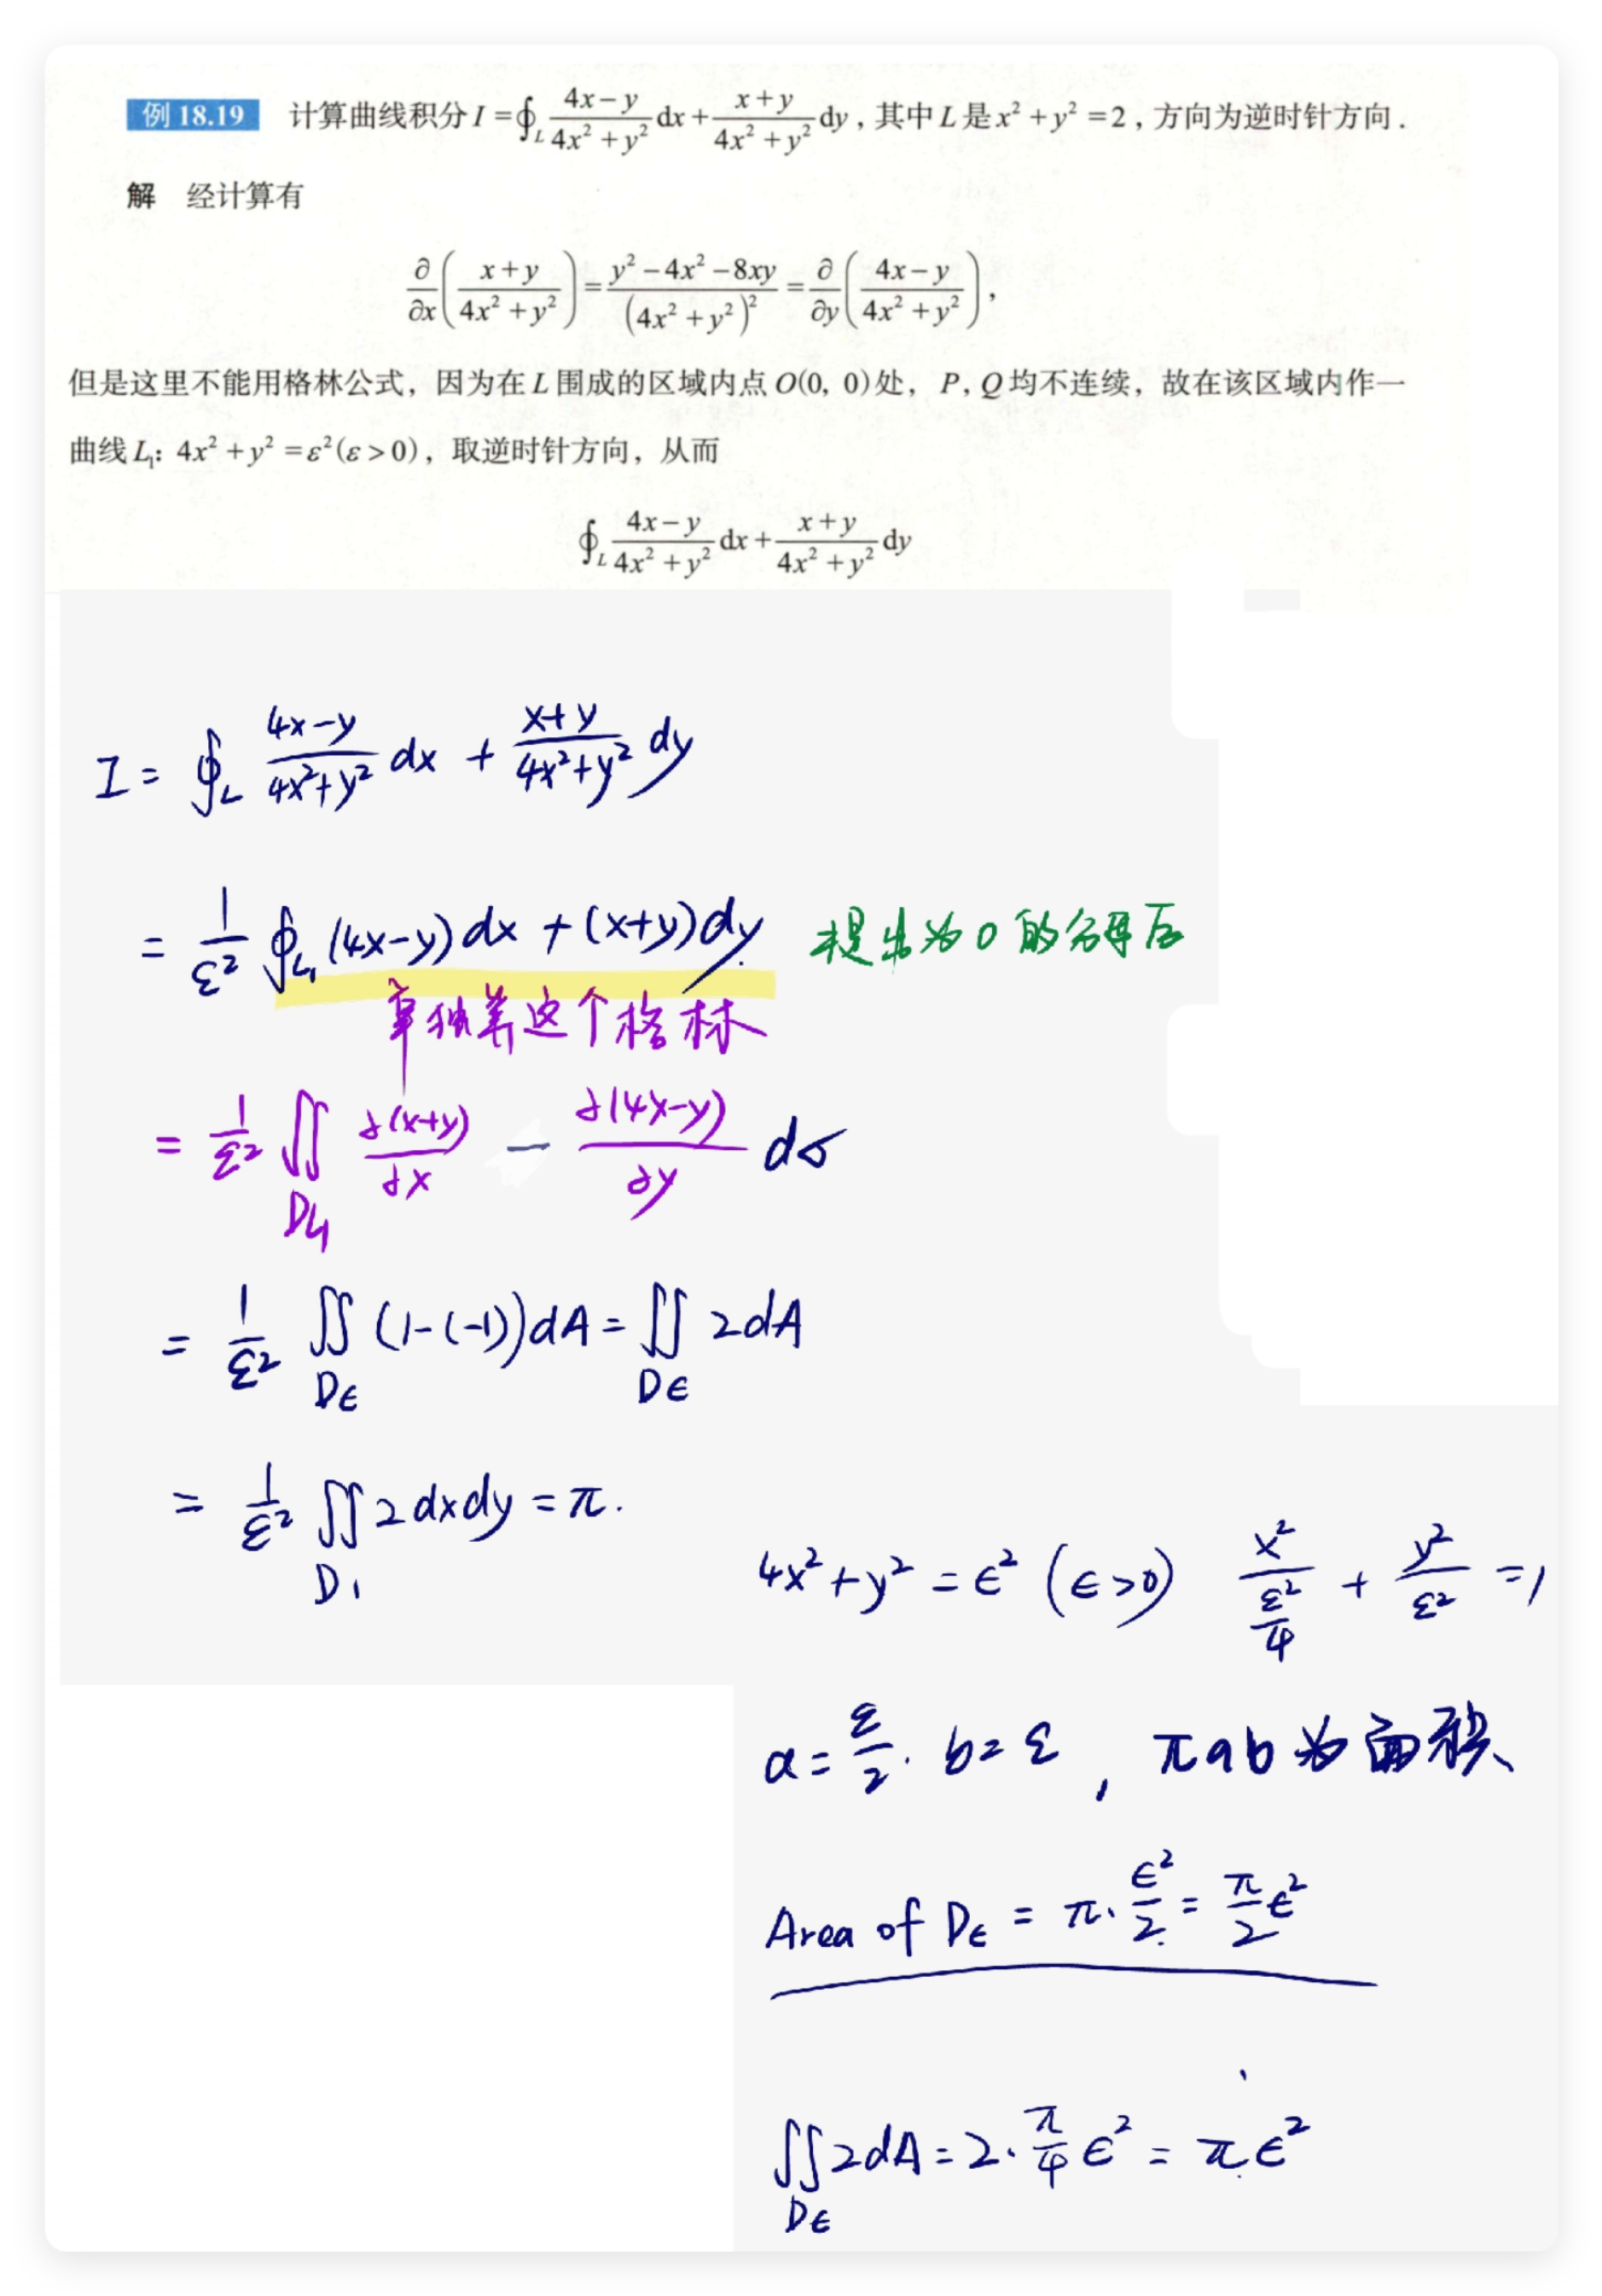 例 18.19 计算曲线积分 I = ∮_L (4x−y)/(4x²+y²) dx + (x+y)/(4x²+y²) dy , 其中 L 是 x² + y² = 2 , 方向为逆时针方向 .
解 经计算有
∂/∂x ( (x+y)/(4x²+y²) ) = (y²−4x²−8xy)/(4x²+y²)² = ∂/∂y ( (4x−y)/(4x²+y²) ) ,
但是这里不能用格林公式，因为在 L 围成的区域内点 O(0, 0) 处， P, Q 均不连续，故在该区域内作一
曲线 L₁: 4x² + y² = ε² (ε > 0) ，取逆时针方向，从而
∮_L (4x−y)/(4x²+y²) dx + (x+y)/(4x²+y²) dy
I = ∮_L (4x−y)/(4x²+y²) dx + (x+y)/(4x²+y²) dy
= 1/ε² ∮_L₁ (4x−y) dx + (x+y) dy 提出为 0 的分母后
单独算这个格林
= 1/ε² ∬_D_L₁ ∂(x+y)/∂x − ∂(4x−y)/∂y dσ
= 1/ε² ∬_Dϵ (1−(−1)) dA = ∬_Dϵ 2dA
= 1/ε² ∬_D₁ 2 dxdy = π.
4x² + y² = ϵ² (ϵ>0) x²/(ε²/4) + y²/ε² = 1
a = ε/2 . b = ε , πab 为面积、
Area of Dϵ = π · ϵ²/2 = π/2 ϵ²
∬_Dϵ 2dA = 2 · π/4 ϵ² = π ϵ²